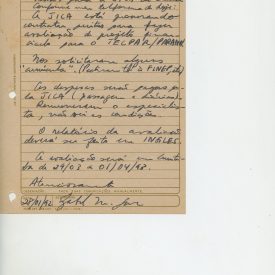 conforme meu telefonema de hoje:
A JICA está procurando
contratar peritos para fazer
avaliação do projeto finan-
ciado para o TECPAR/PARANÁ
Nos solicitaram alguns
(Pedimos à FINEP, etc)
As despesas serão pagas pe
la JICA (passagem e diária).
Remuneram o especialis-
ta, não sei as condições.
O relatório da avaliação
deverá ser feito em INGLÊS.
A avaliação será em Curiti-
ba de 29/03 a 01/04/98.
Atenciosamente